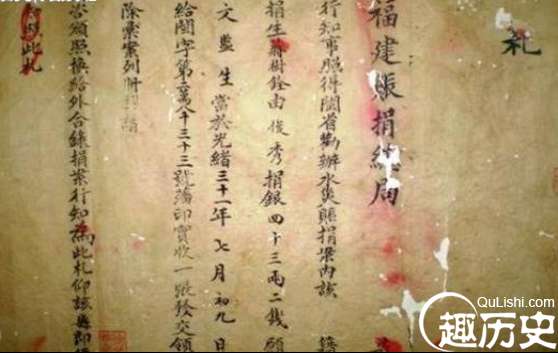 札
福建賑捐總局
行知事照得閩省勸辦水災賑捐案內該
捐生翁樹銓由俊秀捐銀四十三兩二錢願
文監生當於光緒三十一年七月初九日
給閩字第二萬八千三十三號藩印實收一張發交領
除彙案列冊
領照換給外合錄捐案行知為此札仰該
此札
QuLishi.com
趣历史